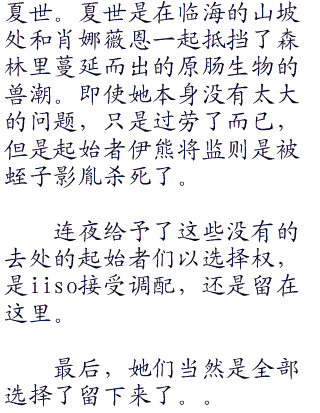 夏世。夏世是在临海的山坡
处和肖娜薇恩一起抵挡了森
林里蔓延而出的原肠生物的
兽潮。即使她本身没有太大
的问题，只是过劳了而已，
但是起始者伊熊将监则是被
蛭子影胤杀死了。
连夜给予了这些没有的
去处的起始者们以选择权，
是iiso接受调配，还是留在
这里。
最后，她们当然是全部
选择了留下来了。。